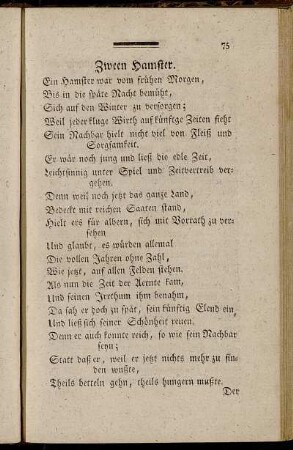 75
Zween Hamster.
Ein Hamster war vom frühen Morgen,
Bis in die späte Nacht bemüht,
Sich auf den Winter zu versorgen;
Weil jeder kluge Wirth auf künftge Zeiten sieht
Sein Nachbar hielt nicht viel von Fleiß und
Sorgsamkeit.
Er war noch jung und ließ die edle Zeit,
Leichtsinnig unter Spiel und Zeitvertreib ver-
gehen.
Denn weil noch jetzt das ganze Land,
Bedeckt mit reichen Saaten stand,
Hielt ers für albern, sich mit Vorrath zu ver-
sehen
Und glaubt, es würden allemal
Die vollen Jahren ohne Zahl,
Wie jetzt, auf allen Felden stehen.
Als nun die Zeit der Aernte kam,
Und seinen Irrthum ihm benahm,
Da sah er doch zu spät, sein künftig Elend ein,
Und ließ sich seiner Schönheit reuen.
Denn er auch konnte reich, so wie sein Nachbar
seyn;
Statt daß er, weil er jetzt nichts mehr zu fin-
den wußte,
Theils betteln gehn, theils hungern mußte.
Der